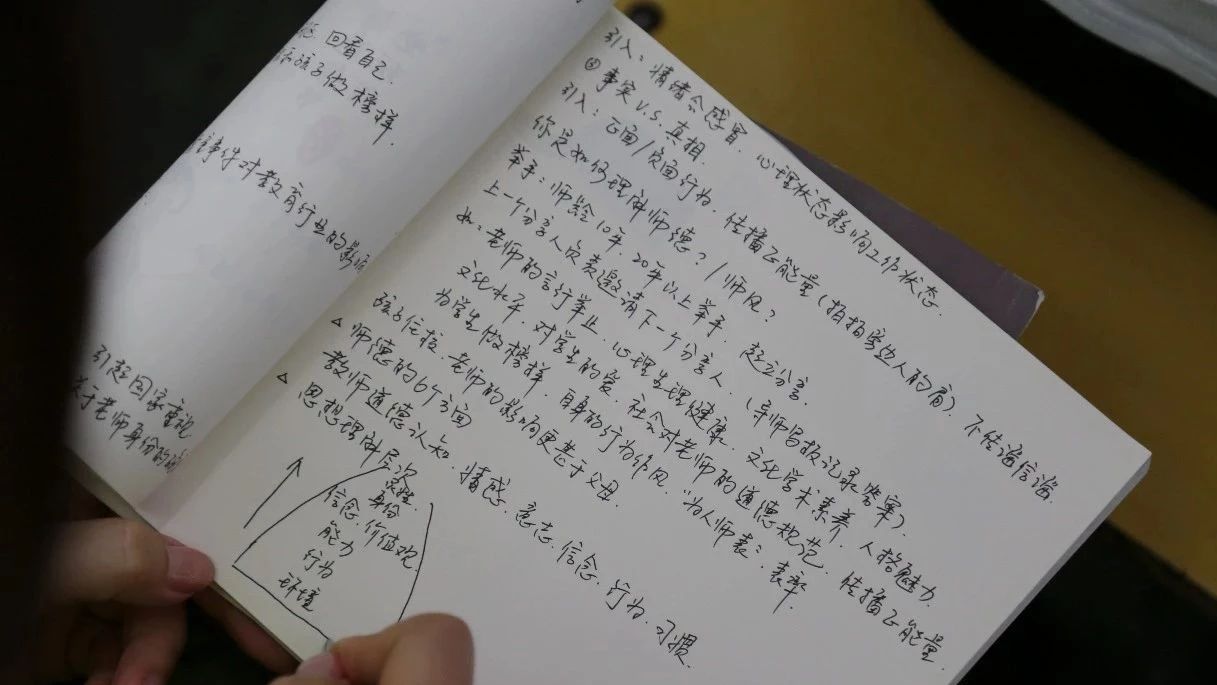 回看自己.
孩子做榜样.
事件对教育行业的影响
引起国家重视
关于老师身份的
引入：情绪会感冒. 心理状态影响工作状态.
③ 事实 v.s. 真相.
引入：正面/负面行为. 传播正能量(拍拍旁边人的肩). 不传谣信谣
你是如何理解师德？/师风？
举手：师龄10年. 20年以上举手. 起立分享.
上一个分享人负责邀请下一个分享人. (导师白板记录答案)
如：老师的言行举止. 心理生理健康. 文化学术素养. 人格魅力.
文化水平. 对学生的爱. 社会对老师的道德规范. 传播正能量.
为学生做榜样. 自身的行为作风. "为人师表": 表率.
孩子在校. 老师的影响更甚于父母.
△ 师德的6个方面
教师道德认知. 情感. 意志. 信念. 行为. 习惯.
△ 思想理解层次
身份
信念. 价值观
能力
行为
环境